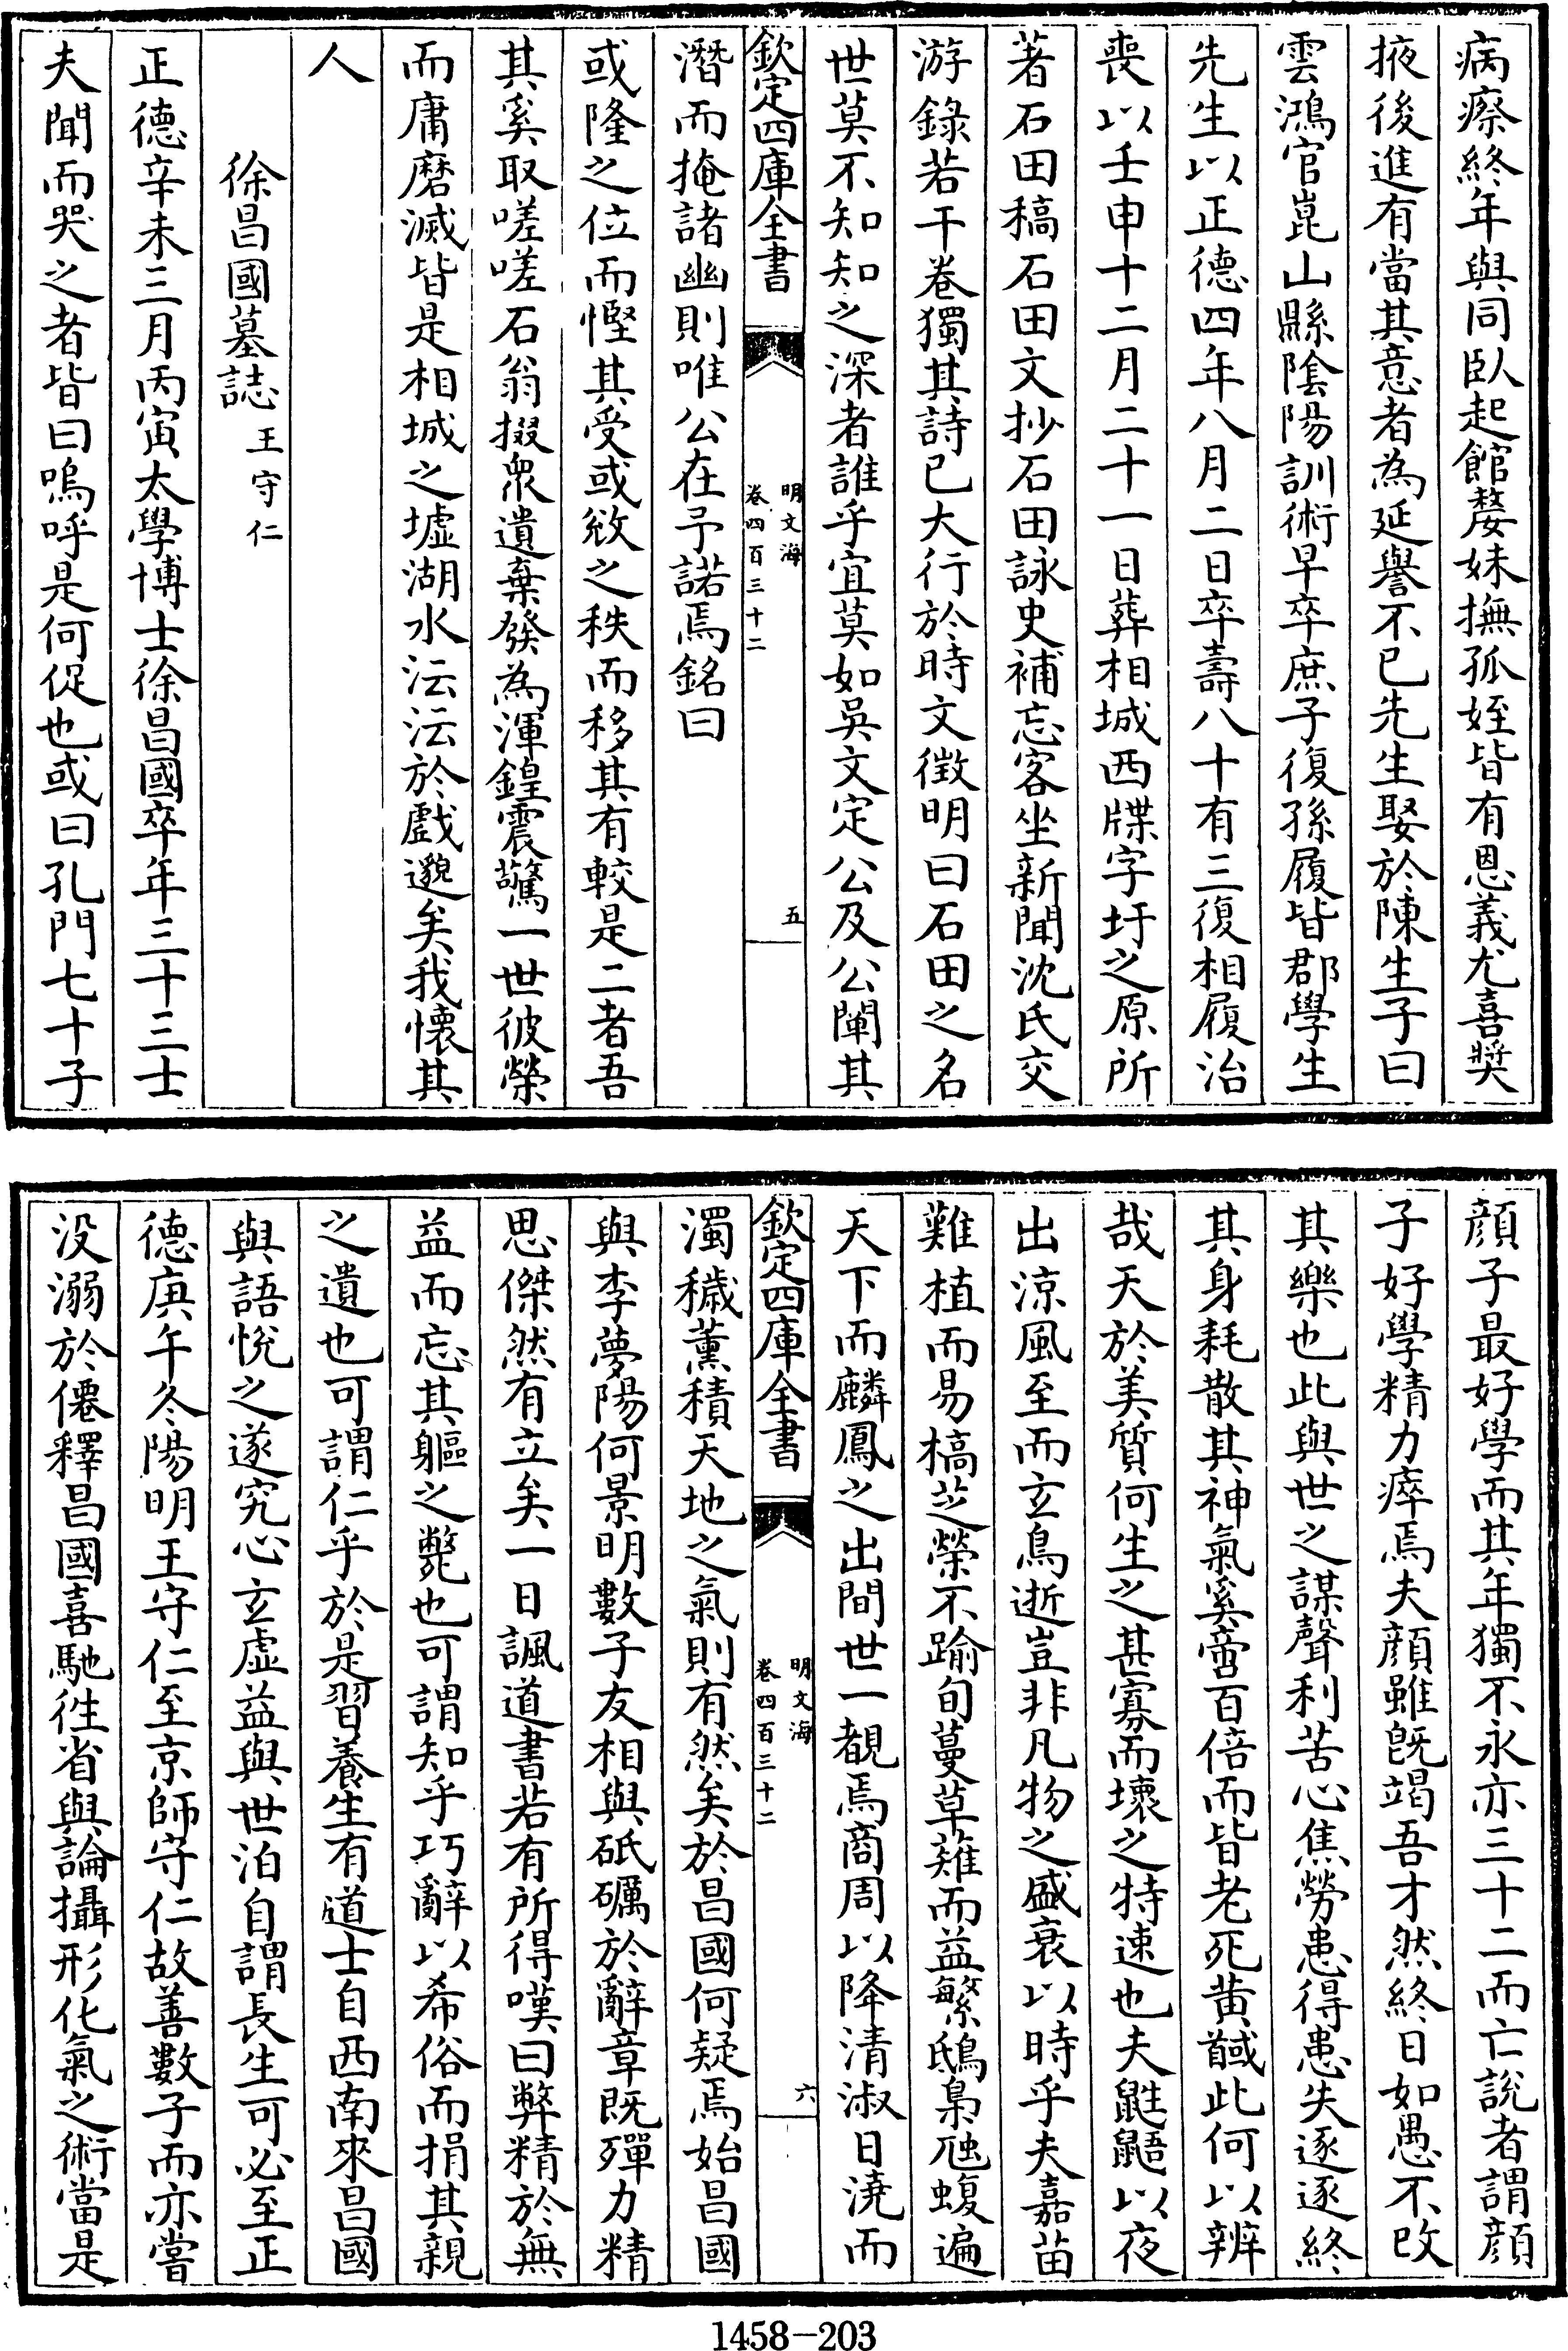 病瘵終年與同臥起館嫠妹撫孤姪皆有恩義尤喜奬
掖後進有當其意者為延譽不已先生娶於陳生子曰
雲鴻官崑山縣陰陽訓術早卒庶子復孫履皆郡學生
先生以正德四年八月二日卒壽八十有三復相履治
喪以壬申十二月二十一日葬相城西牒字圩之原所
著石田稿石田文抄石田詠史補忘客坐新聞沈氏交
游錄若干卷獨其詩已大行於時文徵明曰石田之名
世莫不知知之深者誰乎宜莫如吳文定公及公闡其
欽定四庫全書
明文海
卷四百三十二
五
潛而掩諸幽則唯公在予諾焉銘曰
或隆之位而慳其受或斂之秩而移其有較是二者吾
其奚取嗟嗟石翁掇衆遺棄發為渾鍠震驚一世彼榮
而庸磨滅皆是相城之墟湖水沄沄於戲邈矣我懷其
人
徐昌國墓誌 王守仁
正德辛未三月丙寅太學博士徐昌國卒年三十三士
夫聞而哭之者皆曰嗚呼是何促也或曰孔門七十子
顔子最好學而其年獨不永亦三十二而亡說者謂顔
子好學精力瘁焉夫顔雖旣竭吾才然終日如愚不改
其樂也此與世之謀聲利苦心焦勞患得患失逐逐終
其身耗散其神氣奚啻百倍而皆老死黄馘此何以辨
哉天於美質何生之甚寡而壞之特速也夫鼪鼯以夜
出涼風至而玄鳥逝豈非凡物之盛衰以時乎夫嘉苗
難植而易槁芝榮不踰旬蔓草薙而益繁鴟梟虺蝮遍
天下而麟鳳之出間世一覩焉商周以降清淑日澆而
欽定四庫全書
明文海
卷四百三十二
六
濁穢薰積天地之氣則有然矣於昌國何疑焉始昌國
與李夢陽何景明數子友相與砥礪於辭章既殫力精
思傑然有立矣一日諷道書若有所得嘆曰弊精於無
益而忘其軀之斃也可謂知乎巧辭以希俗而捐其親
之遺也可謂仁乎於是習養生有道士自西南來昌國
與語悅之遂究心玄虛益與世泊自謂長生可必至正
德庚午冬陽明王守仁至京師守仁故善數子而亦嘗
没溺於僊釋昌國喜馳往省與論攝形化氣之術當是
1458-203